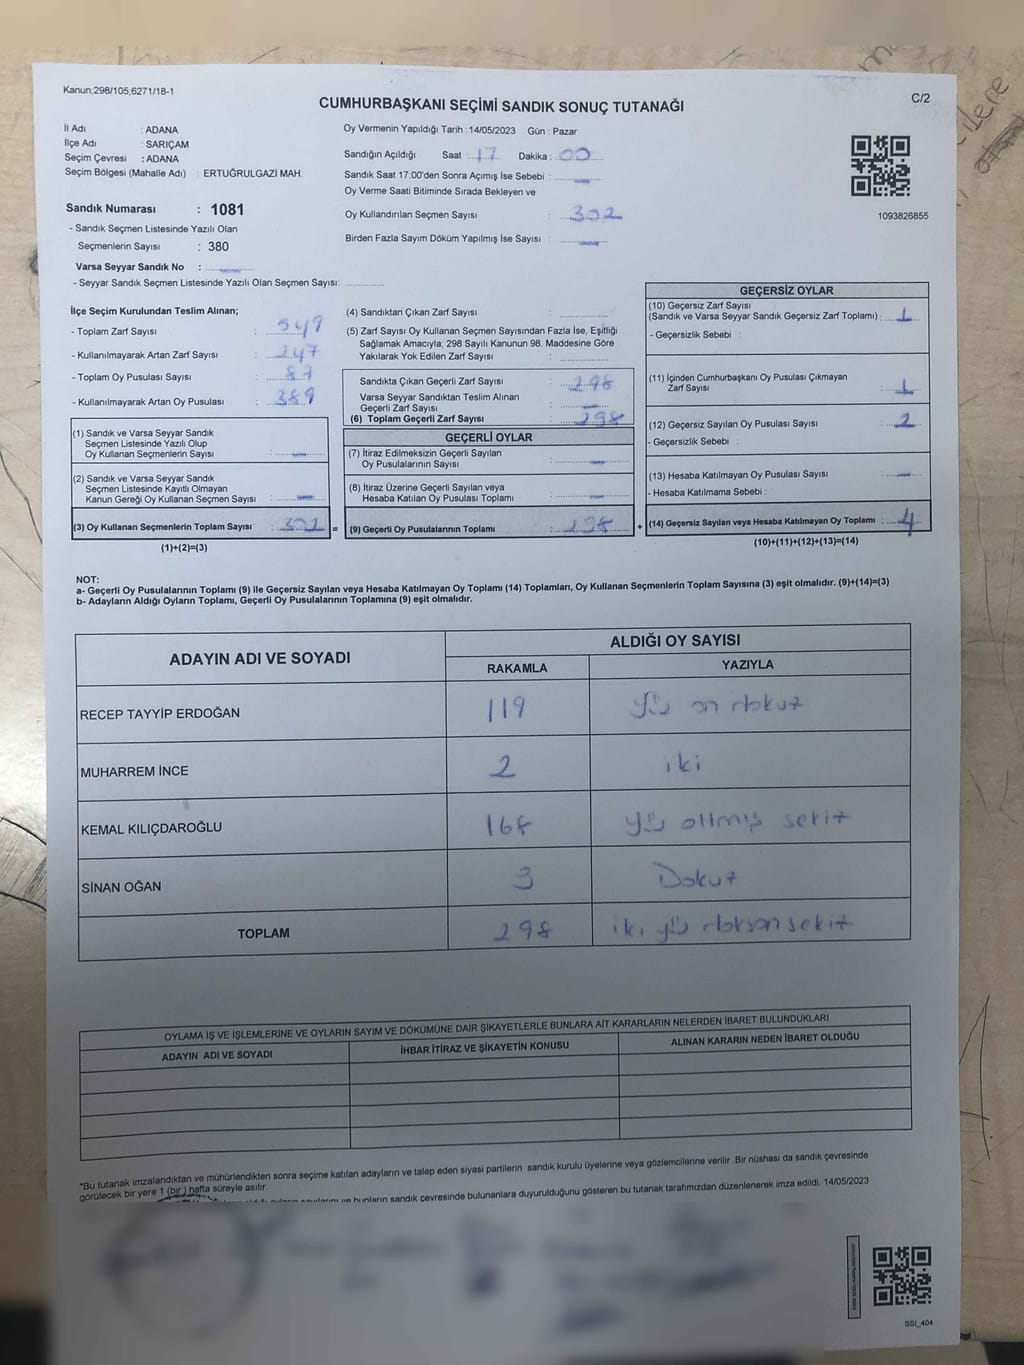 Kanun;298/105;6271/18-1
C/2
CUMHURBAŞKANI SEÇİMİ SANDIK SONUÇ TUTANAĞI
İl Adı : ADANA
İlçe Adı : SARIÇAM
Seçim Çevresi : ADANA
Seçim Bölgesi (Mahalle Adı) : ERTUĞRULGAZİ MAH.
Sandık Numarası : 1081
- Sandık Seçmen Listesinde Yazılı Olan
Seçmenlerin Sayısı : 380
Varsa Seyyar Sandık No :
- Seyyar Sandık Seçmen Listesinde Yazılı Olan Seçmen Sayısı:
Oy Vermenin Yapıldığı Tarih :14/05/2023 Gün : Pazar
Sandığın Açıldığı Saat : 17 Dakika : 00
Sandık Saat 17:00'den Sonra Açımış İse Sebebi :
Oy Verme Saati Bitiminde Sırada Bekleyen ve
Oy Kullandırılan Seçmen Sayısı : 302
Birden Fazla Sayım Döküm Yapılmış İse Sayısı :
1093826855
İlçe Seçim Kurulundan Teslim Alınan;
- Toplam Zarf Sayısı : 549
- Kullanılmayarak Artan Zarf Sayısı : 247
- Toplam Oy Pusulası Sayısı : 87
- Kullanılmayarak Artan Oy Pusulası : 389
(1) Sandık ve Varsa Seyyar Sandık
Seçmen Listesinde Yazılı Olup
Oy Kullanan Seçmenlerin Sayısı :
(2) Sandık ve Varsa Seyyar Sandık
Seçmen Listesinde Kayıtlı Olmayan
Kanun Gereği Oy Kullanan Seçmen Sayısı :
(3) Oy Kullanan Seçmenlerin Toplam Sayısı : 302 =
(1)+(2)=(3)
(4) Sandıktan Çıkan Zarf Sayısı :
(5) Zarf Sayısı Oy Kullanan Seçmen Sayısından Fazla İse, Eşitliği
Sağlamak Amacıyla; 298 Sayılı Kanunun 98. Maddesine Göre
Yakılarak Yok Edilen Zarf Sayısı :
Sandıkta Çıkan Geçerli Zarf Sayısı : 298
Varsa Seyyar Sandıktan Teslim Alınan
Geçerli Zarf Sayısı :
(6) Toplam Geçerli Zarf Sayısı : 298
GEÇERLİ OYLAR
(7) İtiraz Edilmeksizin Geçerli Sayılan
Oy Pusulalarının Sayısı :
(8) İtiraz Üzerine Geçerli Sayılan veya
Hesaba Katılan Oy Pusulası Toplamı :
(9) Geçerli Oy Pusulalarının Toplamı : 298 +
GEÇERSİZ OYLAR
(10) Geçersiz Zarf Sayısı
(Sandık ve Varsa Seyyar Sandık Geçersiz Zarf Toplamı) : 1
- Geçersizlik Sebebi :
(11) İçinden Cumhurbaşkanı Oy Pusulası Çıkmayan
Zarf Sayısı : 1
(12) Geçersiz Sayılan Oy Pusulası Sayısı : 2
- Geçersizlik Sebebi :
(13) Hesaba Katılmayan Oy Pusulası Sayısı :
- Hesaba Katılmama Sebebi :
(14) Geçersiz Sayılan veya Hesaba Katılmayan Oy Toplamı : 4
(10)+(11)+(12)+(13)=(14)
NOT:
a- Geçerli Oy Pusulalarının Toplamı (9) ile Geçersiz Sayılan veya Hesaba Katılmayan Oy Toplamı (14) Toplamları, Oy Kullanan Seçmenlerin Toplam Sayısına (3) eşit olmalıdır. (9)+(14)=(3)
b- Adayların Aldığı Oyların Toplamı, Geçerli Oy Pusulalarının Toplamına (9) eşit olmalıdır.
ADAYIN ADI VE SOYADI
ALDIĞI OY SAYISI
RAKAMLA YAZIYLA
RECEP TAYYİP ERDOĞAN 119 yüz on dokuz
MUHARREM İNCE 2 iki
KEMAL KILIÇDAROĞLU 168 yüz altmış sekiz
SİNAN OĞAN 3 Dokuz
TOPLAM 298 iki yüz doksan sekiz
OYLAMA İŞ VE İŞLEMLERİNE VE OYLARIN SAYIM VE DÖKÜMÜNE DAİR ŞİKAYETLERLE BUNLARA AİT KARARLARIN NELERDEN İBARET BULUNDUKLARI
ADAYIN ADI VE SOYADI İHBAR İTİRAZ VE ŞİKAYETİN KONUSU ALINAN KARARIN NEDEN İBARET OLDUĞU
*Bu tutanak imzalandıktan ve mühürlendikten sonra seçime katılan adayların ve talep eden siyasi partilerin sandık kurulu üyelerine veya gözlemcilerine verilir .Bir nüshası da sandık çevresinde
görülecek bir yere 1 (bir ) hafta süreyle asılır.
bunların sandık çevresinde bulunanlara duyurulduğunu gösteren bu tutanak tarafımızdan düzenlenerek imza edildi. 14/05/2023
SSI_404